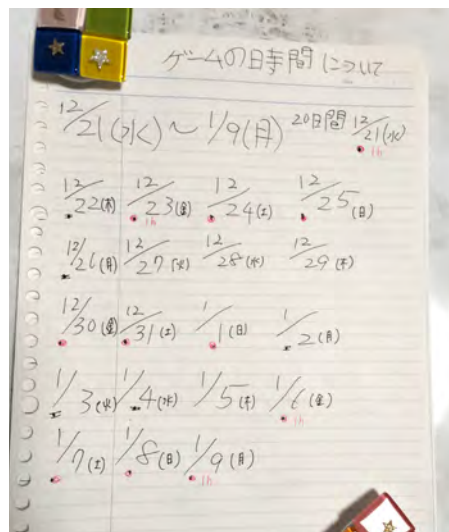 ゲームの時間について
12/21(水)～1/9(月) 20日間 12/21(水)
1h
12/22(木) 12/23(金) 12/24(土) 12/25(日)
1h
12/26(月) 12/27(火) 12/28(水) 12/29(木)
12/30(金) 12/31(土) 1/1(日) 1/2(月)
1/3(火) 1/4(水) 1/5(木) 1/6(金)
1h
1/7(土) 1/8(日) 1/9(月)
1h